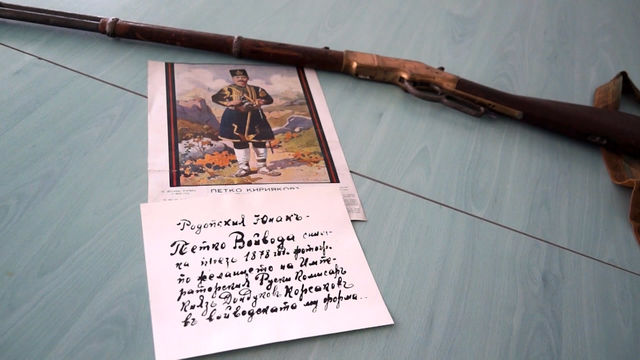 ПЕТКО КИРИЯКОВЪ
-Родопския Юнакъ-
Петко Войвода сним-
ка презъ 1878 год. фотогр.
по желанието на Импе-
раторския Руски Комисаръ
Князъ Дондуковъ Корсаковъ
въ войводската му форма..